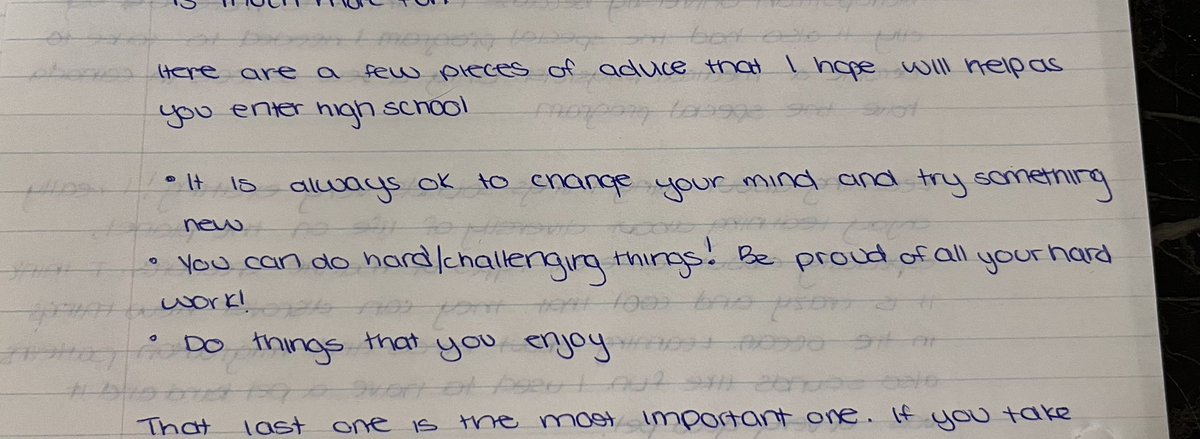 is much more fun
Here are a few pieces of aduce that I hope will help as
you enter high school
• It is always ok to change your mind and try something
new
• You can do hard/challenging things! Be proud of all your hard
work!
• Do things that you enjoy
That last one is the most important one. If you take